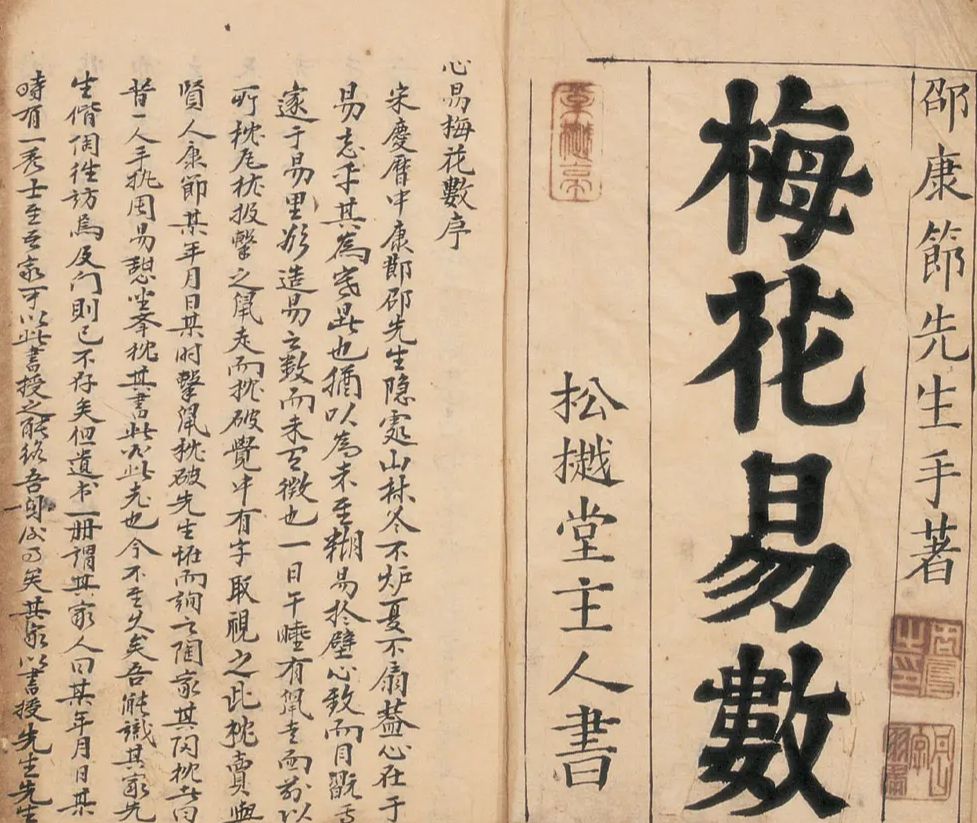 邵康節先生手著
梅花易數
松樾堂主人書
心易梅花數序
宋慶曆中康節邵先生隱處山林冬不炉夏不扇蓋心在于
易忘乎其為寒暑也猶以為未至糊易於壁心致而目翫焉
邃于易理欲造易之數而未有徵也一日午睡有鼠走而前以
所枕瓦枕投擊之鼠走而枕破覺中有字取視之此枕賣與
賢人康節某年月日某时擊鼠枕破先生怪而詢之陶家其陶枕者曰
昔一人手执周易憩坐举枕其書此必此老也今不至久矣吾能識其家先
生偕陶往訪焉及门則已不存矣但遺书一册謂其家人曰某年月日某
時有一秀士至吾家可以此書授之能終吾身後事矣其家以書授先生先生